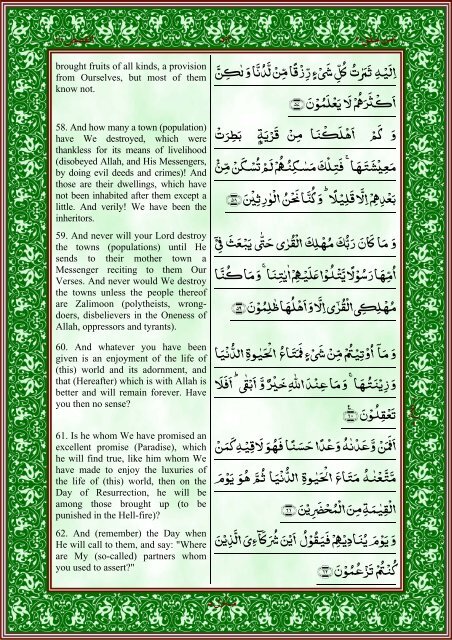 brought fruits of all kinds, a provision
from Ourselves, but most of them
know not.
58. And how many a town (population)
have We destroyed, which were
thankless for its means of livelihood
(disobeyed Allah, and His Messengers,
by doing evil deeds and crimes)! And
those are their dwellings, which have
not been inhabited after them except a
little. And verily! We have been the
inheritors.
59. And never will your Lord destroy
the towns (populations) until He
sends to their mother town a
Messenger reciting to them Our
Verses. And never would We destroy
the towns unless the people thereof
are Zalimoon (polytheists, wrong-
doers, disbelievers in the Oneness of
Allah, oppressors and tyrants).
60. And whatever you have been
given is an enjoyment of the life of
(this) world and its adornment, and
that (Hereafter) which is with Allah is
better and will remain forever. Have
you then no sense?
61. Is he whom We have promised an
excellent promise (Paradise), which
he will find true, like him whom We
have made to enjoy the luxuries of
the life of (this) world, then on the
Day of Resurrection, he will be
among those brought up (to be
punished in the Hell-fire)?
62. And (remember) the Day when
He will call to them, and say: "Where
are My (so-called) partners whom
you used to assert?"
اِلَيْهِ ثَمَرٰتُ كُلِّ شَيْءٍ رِّزْقًا مِّنْ لَّدُنَّا وَلٰكِنَّ
اَكْثَرَهُمْ لَا يَعْلَمُوْنَ ﴿۵۷﴾
وَ كَمْ اَهْلَكْنَا مِنْ قَرْيَةٍۭ بَطِرَتْ
مَعِيْشَتَهَا ۚ فَتِلْكَ مَسٰكِنُهُمْ لَمْ تُسْكَنْ مِّنْۢ
بَعْدِهِمْ اِلَّا قَلِيْلًا ؕ وَ كُنَّا نَحْنُ الْوٰرِثِيْنَ ﴿۵۸﴾
وَ مَا كَانَ رَبُّكَ مُهْلِكَ الْقُرٰى حَتّٰى يَبْعَثَ فِيْۤ
اُمِّهَا رَسُوْلًا يَّتْلُوْا عَلَيْهِمْ اٰيٰتِنَا ۚ وَ مَا كُنَّا
مُهْلِكِي الْقُرٰٓى اِلَّا وَ اَهْلُهَا ظٰلِمُوْنَ ﴿۵۹﴾
وَ مَاۤ اُوْتِيْتُمْ مِّنْ شَيْءٍ فَمَتَاعُ الْحَيٰوةِ الدُّنْيَا
وَ زِيْنَتُهَا ۚ وَ مَا عِنْدَ اللّٰهِ خَيْرٌ وَّ اَبْقٰى ؕ اَفَلَا
تَعْقِلُوْنَ ﴿۶۰﴾
اَفَمَنْ وَّعَدْنٰهُ وَعْدًا حَسَنًا فَهُوَ لَاقِيْهِ كَمَنْ
مَّتَّعْنٰهُ مَتَاعَ الْحَيٰوةِ الدُّنْيَا ثُمَّ هُوَ يَوْمَ
الْقِيٰمَةِ مِنَ الْمُحْضَرِيْنَ ﴿۶۱﴾
وَ يَوْمَ يُنَادِيْهِمْ فَيَقُوْلُ اَيْنَ شُرَكَآءِيَ الَّذِيْنَ
كُنْتُمْ تَزْعُمُوْنَ ﴿۶۲﴾